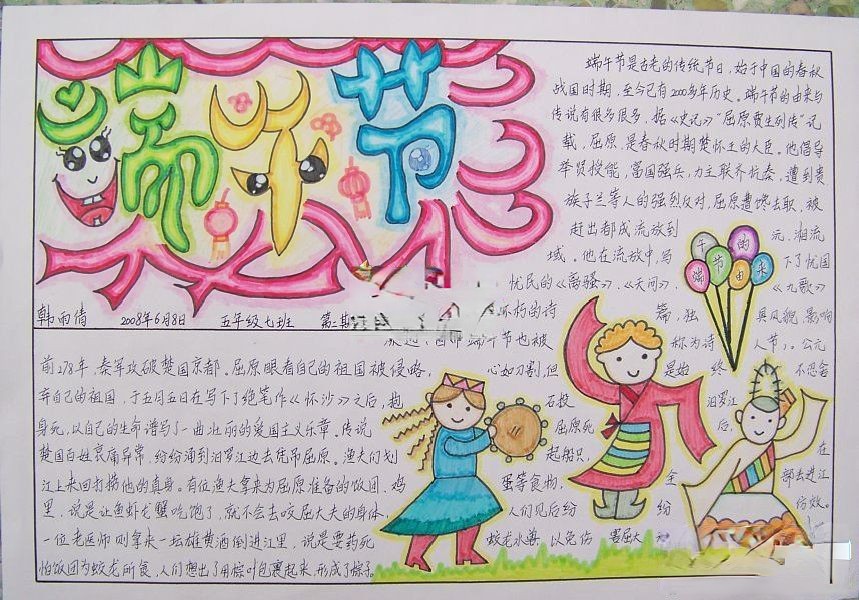 端午节
端午节是古老的传统节日，始于中国的春秋
战国时期，至今已有2000多年历史。端午节的由来与
传说有很多很多，据《史记》“屈原贾生列传”记
载，屈原，是春秋时期楚怀王的大臣。他倡导
举贤授能，富国强兵，力主联齐抗秦，遭到贵
族子兰等人的强烈反对，屈原遭馋去职，被
赶出都成流放到 元、湘流
域。他在流放中，写 下了忧国
忧民的《离骚》、《天问》、 《九歌》
不朽的诗 篇，独 具风貌，影响
端午节也被 称为诗 人节）。公元
午节的
端由来
韩雨倩 2008年6月8日 五年级七班 第二期
前278年，秦军攻破楚国京都。屈原眼看自己的祖国被侵略， 心如刀割，但 是始 终 不忍舍
弃自己的祖国，于五月五日在写下了绝笔作《怀沙》之后，抱 石投 汨罗江
身死，以自己的生命谱写了一曲壮丽的爱国主义乐章。传说 屈原死 后，
楚国百姓哀痛异常，纷纷涌到汨罗江边去凭吊屈原。渔夫们划 起船只， 在
江上来回打捞他的真身。有位渔夫拿来为屈原准备的饭团、鸡 蛋等食物， 全 部丢进江
里，说是让鱼虾龙蟹吃饱了，就不会去咬屈大夫的身体， 人们见后纷 纷 仿效。
一位老医师则拿来一坛雄黄酒倒进江里，说是要药死 蛟龙水兽，以免伤 害屈大
怕饭团为蛟龙所食，人们想出了用粽叶包裹起来，形成了粽子。